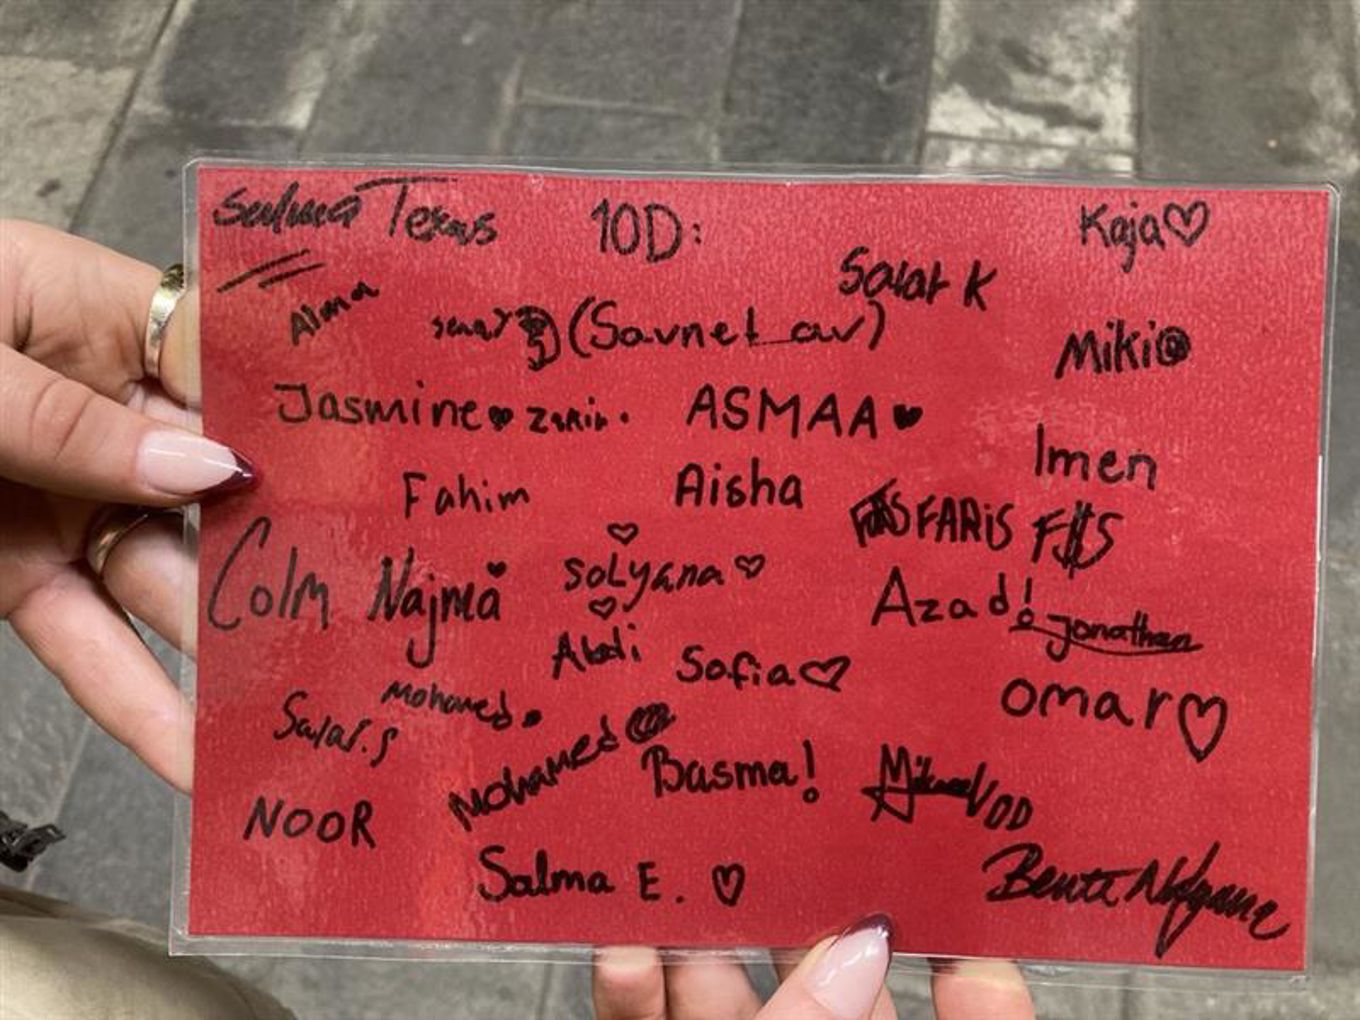 Salma Texas 10D: Kaja
Salat K
Alma (Savnet av) Miki
Jasmine Zakir. ASMAA
Imen
Fahim Aisha
FARIS F$S
Colm Najma SoLyana
Azad!
Jonathan
Abdi Sofia
Mohamed Omar
Mohamed Basma!
NOOR
Salma E.
Bente